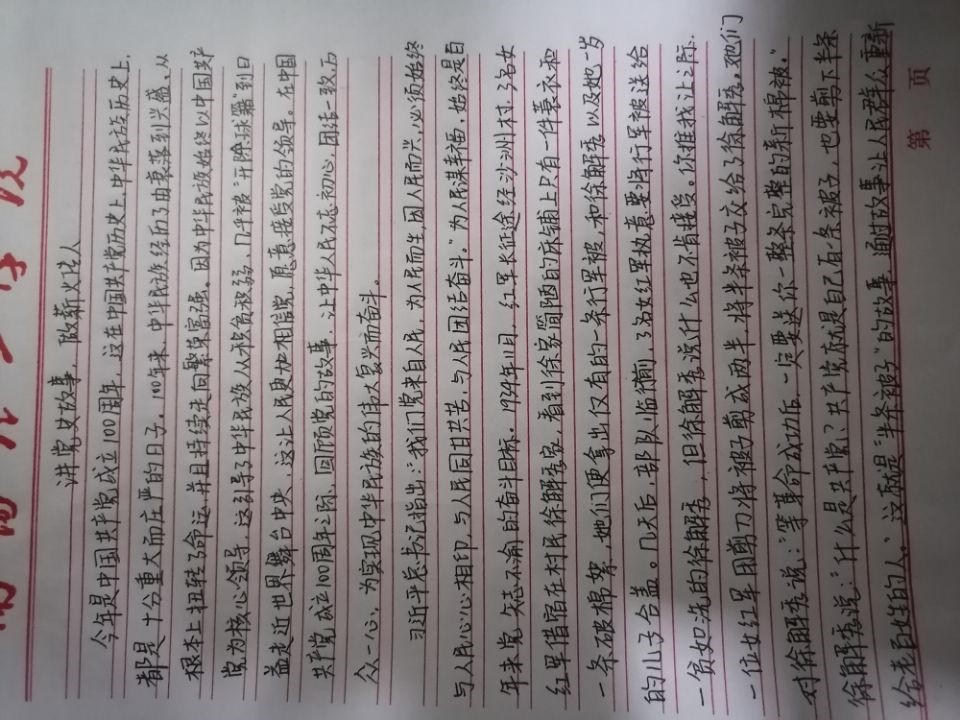 学院
讲党史故事，做薪火传人
今年是中国共产党成立100周年，这在中国共产党历史上，中华民族历史上，
都是十分重大而庄严的日子。100年来，中华民族经历了由衰落到兴盛、从
根本上扭转了命运，并且持续走向繁荣富强。因为中华民族始终以中国共产
党为核心领导，这引导了中华民族从积贫积弱、几乎被“开除球籍”到日
益走近世界舞台中央，这让人民更加相信党，愿意接受党的领导。在中国
共产党成立100周年之际，回顾党的故事，让中华人民不忘初心，团结一致，万
众一心，为实现中华民族的伟大复兴而奋斗。
习近平总书记指出：“我们党来自人民，为人民而生，因人民而兴，必须始终
与人民心心相印，与人民同甘共苦，与人民团结奋斗。”为人民谋幸福，始终是百
年来党矢志不渝的奋斗目标。1934年11月，红军长征途经沙洲村，3名女
红军借宿在村民徐解秀家，看到徐家简陋的床铺上只有一件蓑衣和
一条破棉絮，她们便拿出仅有的一条行军被，和徐解秀以及她一岁
的儿子合盖。几天后，部队临行前，3名女红军执意要将行军被送给
一贫如洗的徐解秀，但徐解秀说什么也不肯接受。你推我让之际，
一位女红军用剪刀将被子剪成两半，将半条被子交给了徐解秀。她们
对徐解秀说：“等革命成功后，一定要送你一整条完整的新棉被。”
徐解秀说：“什么是共产党？共产党就是自己有一条被子，也要剪下半条
给老百姓的人。”这就是“半条被子”的故事，通过故事让人民群众重新
第 页